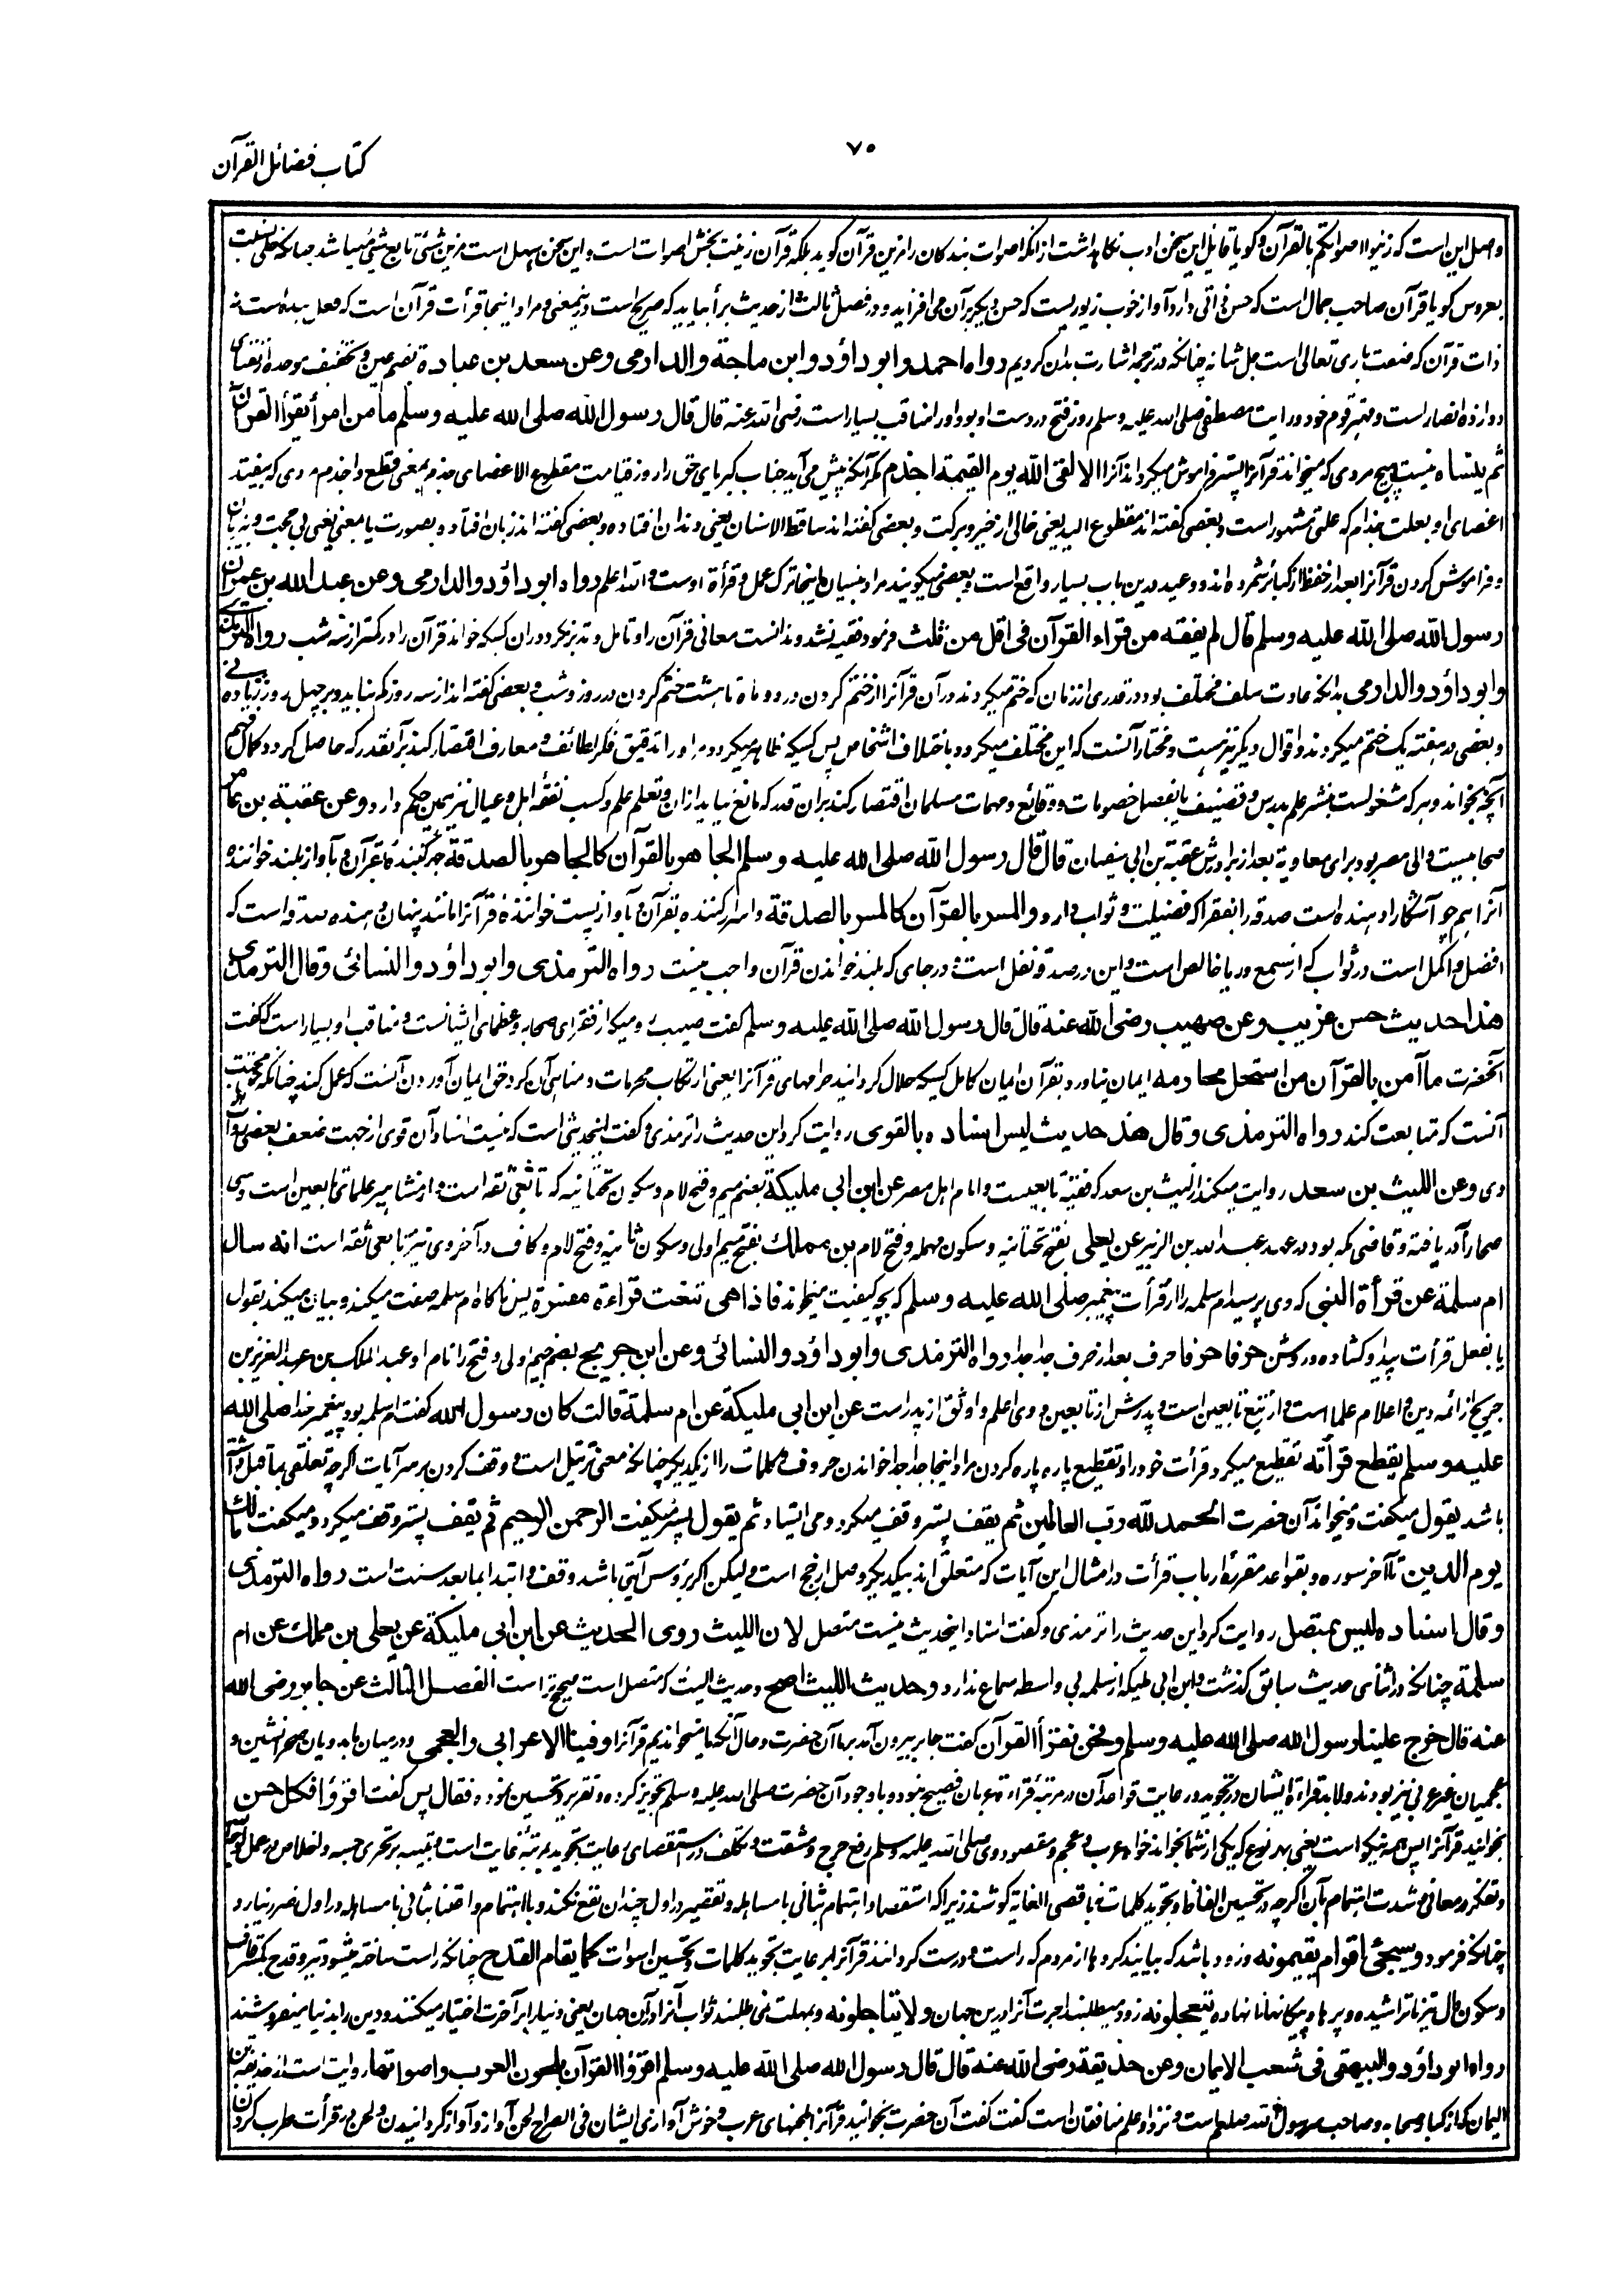 کتاب فضائل القرآن
۷۰
واصل این است که زینوا اصواتکم بالقرآن و گویا قائل این سخن ادب نگاهداشت ازانکه اصوات بندگان را مزین قرآن گوید بلکه قرآن زینت بخش اصوات است و این سخن سهل است مزین شئ تابع شئ میباشد چنانکه حلی نسبت
بعروس گویا قرآن صاحب جمال است که حسن ذاتی دارد و آواز خوب زیوریست که حسن دیگر بران می افزاید و در فصل ثالث از حدیث برا بیاید که صریح است درینمعنی و مراد اینجا قرأت قرآن است که فعل بنده است نه
ذات قرآن که صفت باری تعالی است جل شانه چنانکه در ترجمه اشارت بدان کردیم رواه احمد وابو داؤد وابن ماجة والدارمی وعن سعد بن عبادة بضم عین و تخفیف موحده از نقبای
دوازده انصار است و مهتر قوم خود و رایت مصطفی صلی الله علیه وسلم روز فتح در دست او بود و او را مناقب بسیار است رضی الله عنه قال قال رسول الله صلی الله علیه وسلم ما من امرأ یقرأ القرآن
ثم ینساه نیست هیچ مردی که میخواند قرآنرا پستر فراموش میگرداند آنرا الا لقی الله یوم القیمة اجذم مگر آنکه پیش می آید جناب کبریای حق را روز قیامت مقطوع الاعضا جذم بمعنی قطع و اجذم مردی که بیفتد
اعضای او بعلت جذام که علتی مشهور است و بعضی گفته اند مقطوع الید یعنی خالی از خیر و برکت و بعضی گفته اند ساقط الاسنان یعنی دندان افتاده و بعضی گفته اند زبان افتاد و بصورت یا بمعنی یعنی بی حجت و نه زبان
و فراموش کردن قرآنرا بعد از حفظ از کبائر شمرده اند و وعید درین باب بسیار واقع است و بعضی میگویند مراد بنسیان اینجا ترک عمل و قرأة اوست والله اعلم رواه ابو داؤد والدارمی وعن عبد الله بن عمرو ان
رسول الله صلی الله علیه وسلم قال لم یفقه من قراء القرآن فی اقل من ثلث فرمود فقیه نشد و ندانست معانی قرآن را و تامل و تدبر نکرد دران کسیکه خواند قرآن را در کمتر از سه شب رواه الترمذی
وابو داؤد والدارمی بدانکه عادت سلف مختلف بود در قدری از زمان که ختم میکردند در آن قرآنرا از ختم کردن در دو ماه تا هشت ختم کردن در روز و شب و بعضی گفته اند از سه روز کم نباید و بر چهل روز زیاده نے
و بعضی در هفته یک ختم میکردند و اقوال دیگر نیز هست و مختار آنست که این مختلف میگردد باختلاف اشخاص پس کسیکه ظاهر میگردد مر او را تدقیق فکر لطائف و معارف اقتصار کند بر آنقدر که حاصل گردد کمال فهم
آنچه بخواند و هر که مشغولست بنشر علم بدرس و تصنیف یا بفصل خصومات و وقائع و مهمات مسلمانان اقتصار کند بران قدر که مانع نیاید ازان و تعلم علم و کسب نفقه اهل و عیال نیز همین حکم دارد وعن عقبة بن عامر
صحابیست والی مصر بود برای معاویه بعد از برادرش عقبة بن ابی سفیان قال قال رسول الله صلی الله علیه وسلم الجاهر بالقرآن کالجاهر بالصدقة جهر کننده بقرآن و بآواز بلند خواننده
آنرا همچو آشکارا دهنده است صدقه را بفقرا که فضیلت و ثواب دارد والمسر بالقرآن کالمسر بالصدقة و اسرار کننده بقرآن و بآواز پست خوانندۀ قرآنرا مانند پنهان دهنده صدقه است که
افضل و اکمل است در ثواب که از سمع و ریا خالص است و این در صدقۀ نفل است و در جای که بلند خواندن قرآن واجب نیست رواه الترمذی وابو داؤد والنسائی وقال الترمذی
هذا حدیث حسن غریب وعن صهیب رضی الله عنه قال قال رسول الله صلی الله علیه وسلم گفت صهیب رومی که از فقرای صحابه و عظمای ایشانست و مناقب او بسیار است که گفت
آنحضرت ما آمن بالقرآن من استحل محارمه ایمان نیاورد بقرآن ایمان کامل کسیکه حلال گردانید حرامهای قرآنرا یعنی ارتکاب محرمات و مناهی آن کرد حق ایمان آوردن آنست که عمل کند چنانکه محبت
آنست که متابعت کند رواه الترمذی وقال هذا حدیث لیس اسناده بالقوی روایت کرد این حدیث را ترمذی و گفت اینحدیثی است که نیست اسناد آن قوی از جهت ضعف بعضی رواة
وی وعن اللیث بن سعد روایت میکند از لیث بن سعد که فقیه تابعیست و امام اهل مصر عن ابن ابی ملیکة بضم میم و فتح لام و سکون تحتانیه که تابعی ثقه است و از مشاهیر علمای تابعین است و سی
صحابی را دریافته و قاضی مکه بود در عهد عبد الله بن الزبیر عن یعلی بفتح تحتانیه و سکون مهمله و فتح لام بن مملک بفتح میم اولی و سکون ثانیه و فتح لام و کاف در آخر وی نیز تابعی ثقه است انه سال
ام سلمة عن قرأة النبی که وی پرسید ام سلمه را از قرأت پیغمبر صلی الله علیه وسلم که بچه کیفیت میخواند فاذا هی تنعت قراءة مفسرة پس ناگاه ام سلمه صفت میکند و بیان میکند بقول
یا بفعل قرأت پیدا و کشاده و روشن حرفا حرفا حرف بعد از حرف جدا جدا رواه الترمذی وابو داؤد والنسائی وعن ابن جریج بضم جیم اولی و فتح را نام او عبد الملک بن عبد العزیز بن
جریج از ائمه دین و اعلام علما است و از تبع تابعین است و پدرش از تابعین و وی اعلم و اوثق از پدر است عن ابن ابی ملیکة عن ام سلمة قالت کان رسول الله گفت ام سلمه بود پیغمبر خدا صلی الله
علیه وسلم یقطع قرأته تقطیع میکرد قرأت خود را و تقطیع پاره پاره کردن مراد اینجا جدا جدا خواندن حروف و کلمات را از یکدیگر چنانکه معنی ترتیل است و وقف کردن بر سر آیات اگرچه تعلقی بما قبل
باشد یقول میگفت و میخواند آن حضرت الحمد لله رب العالمین ثم یقف پستر وقف میکرد و می ایستاد ثم یقول پستر میگفت الرحمن الرحیم ثم یقف پستر وقف میکرد و میگفت مالک
یوم الدین تا آخر سوره و بقواعد مقررۀ ارباب قرأت در امثال این آیات که متعلق اند بیکدیگر وصل ارجح است ولیکن اگر برؤس آیتی باشد وقف و ابتدا بما بعد سنت است رواه الترمذی
وقال اسناده لیس بمتصل روایت کرد این حدیث را ترمذی و گفت اسناد اینحدیث نیست متصل لان اللیث روی الحدیث عن ابن ابی ملیکة عن یعلی بن مملک عن ام
سلمة چنانکه در اثنای حدیث سابق گذشت و ابن ابی ملیکه از ام سلمه بی واسطه سماع ندارد وحدیث اللیث اصح و حدیث لیث که متصل است صحیح تر است الفصل الثالث عن جابر رضی الله
عنه قال خرج علینا رسول الله صلی الله علیه وسلم ونحن نقرأ القرآن گفت جابر بیرون آمد بر ما آن حضرت و حال آنکه ما میخواندیم قرآنرا وفینا الاعرابی والعجمی و در میان ما بدویان صحرانشین و
عجمیان غیر عربی نیز بودند و لابد قراءة ایشان در تجوید و رعایت قواعد آن در مرتبۀ قراءة عربان فصیح نبود و با وجود آن حضرت صلی الله علیه وسلم تجویز کرده و تقریر و تحسین نموده فقال پس گفت اقرؤا فکل حسن
بخوانید قرآنرا پس همه نیکو است یعنی بهر نوع که یکی از شما بخواند خواه عرب و عجم و مقصود وی صلی الله علیه وسلم رفع حرج و مشقت و تکلف در استقصای رعایت تجوید بمرتبۀ غایت است و تنبیه بر تحری حسبه و اخلاص در عمل
و تفکر در معانی و شدت اهتمام بآن اگرچه در تحسین الفاظ و تجوید کلمات باقصی الغایة کوشند زیرا که استقصا و اهتمام بثانی با مساهله و تقصیر در اول چندان نفع نکند و با اهتمام و اعتنا بثانی با مساهله در اول ضرر نیارد
چنانکه فرمود وسیجئ اقوام یقیمونه و زود باشد که بیایند گروه ها از مردم که راست و درست گردانند قرآنرا برعایت تجوید کلمات و تحسین اصوات کما یقام القدح چنانکه راست ساخته میشود تیر و قدح بکسر قاف
و سکون دال تیز ناتراشیده و پرها و پیکانها نانهاده یتعجلونه زود میطلبند اجرت آنرا درین جهان ولا یتأجلونه و بمهلت نمی طلبند ثواب آنرا در آن جهان یعنی دنیا را بر آخرت اختیار میکنند و دین را بدنیا میفروشند
رواه ابو داؤد والبیهقی فی شعب الایمان وعن حذیفة رضی الله عنه قال قال رسول الله صلی الله علیه وسلم اقرؤا القرآن بلحون العرب واصواتها روایت است از حذیفه بن
الیمان که از کبار صحابه و صاحب سر رسول الله صلعم است و نزد او علم منافقان است گفت گفت آن حضرت بخوانید قرآنرا بلحنهای عرب و خوش آوازی ایشان فی الصراح لحن آواز و آواز گردانیدن و لحن در قرأت طرب کردن